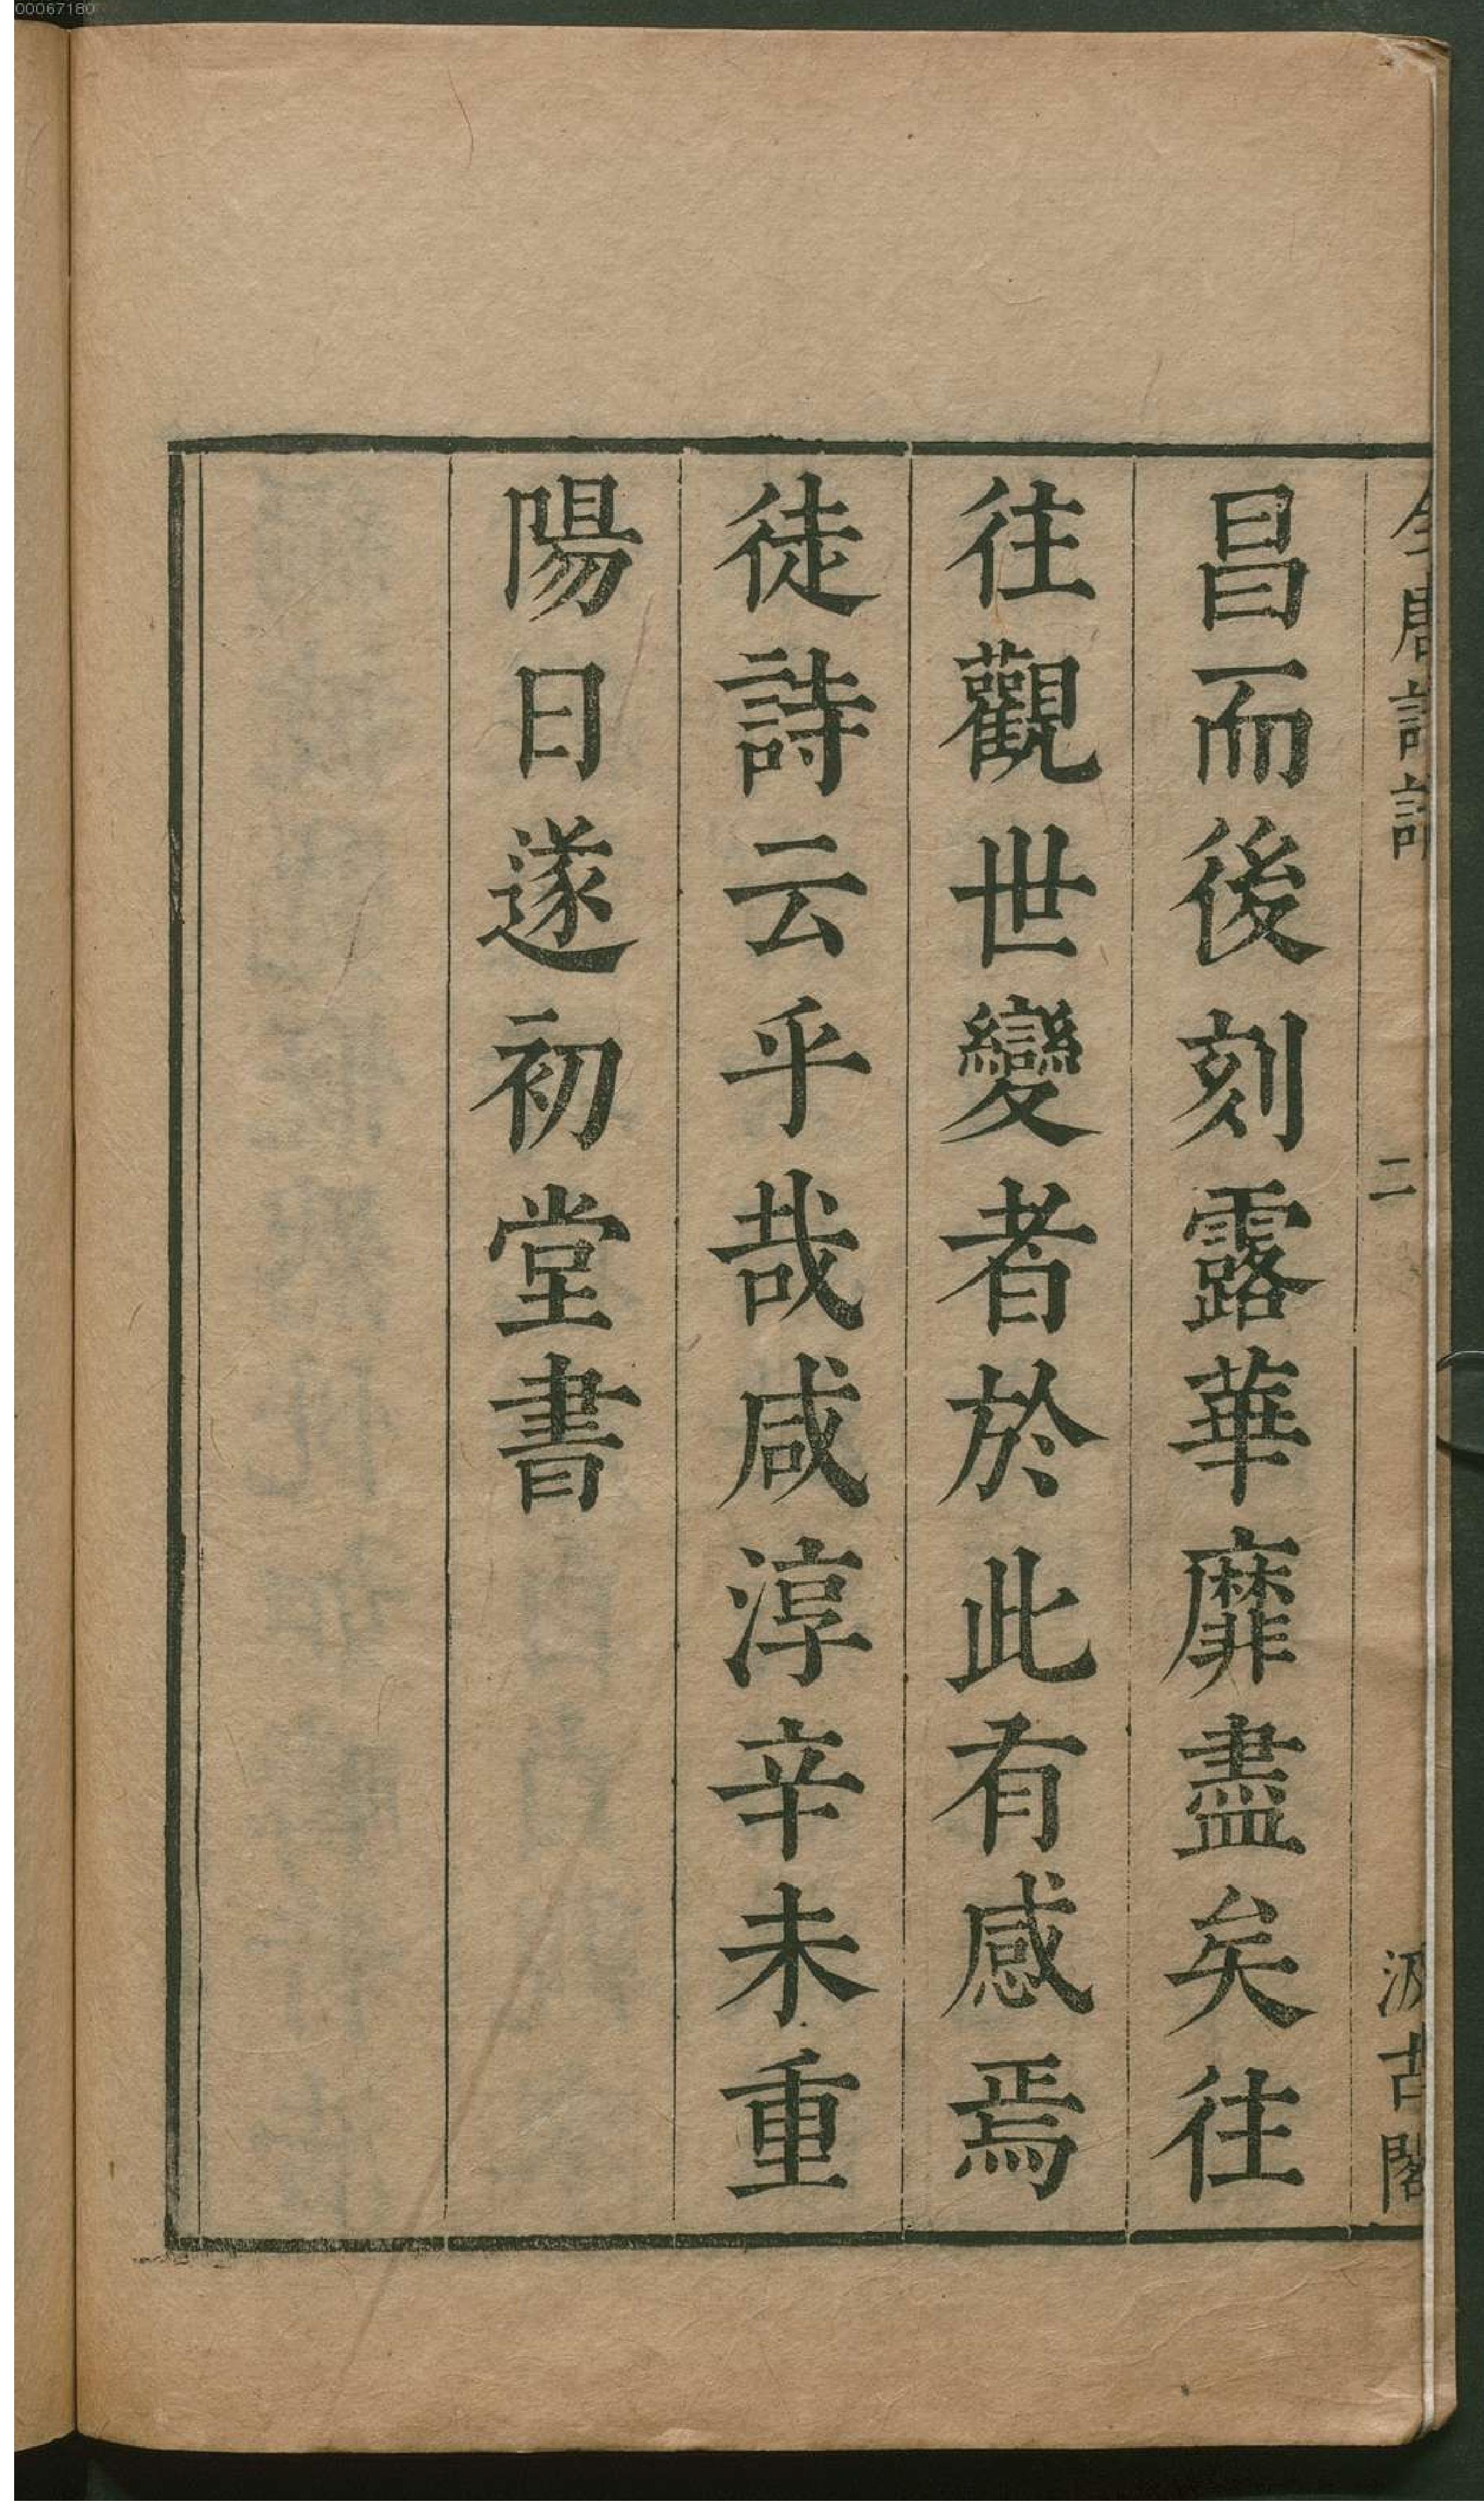 00067180
全唐詩話
二
汲古閣
昌而後刻露華靡盡矣往
往觀世變者於此有感焉
徒詩云乎哉咸淳辛未重
陽日遂初堂書